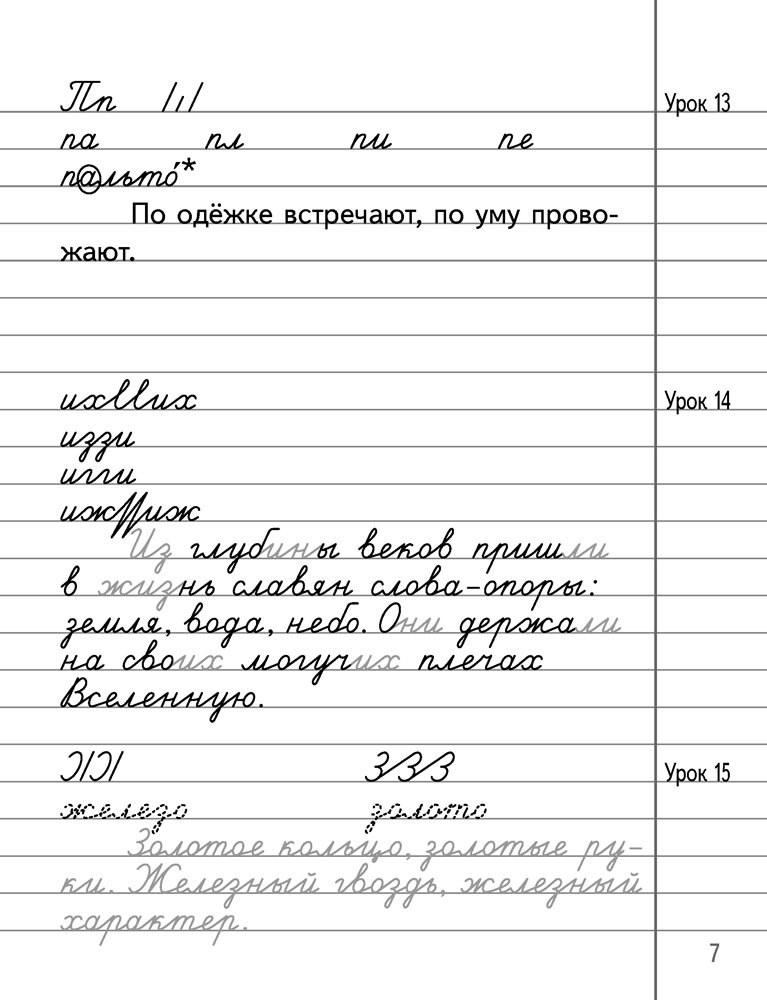 Пп
Урок 13
па пл пи пе
пальто́*
По одёжке встречают, по уму прово-
жают.
их их
Урок 14
иззи
игги
иж иж
Из глубины веков пришли
в жизнь славян слова-опоры:
земля, вода, небо. Они держали
на своих могучих плечах
Вселенную.
ЗЗЗ
Урок 15
железо золото
Золотое кольцо, золотые ру-
ки. Железный гвоздь, железный
характер.
7